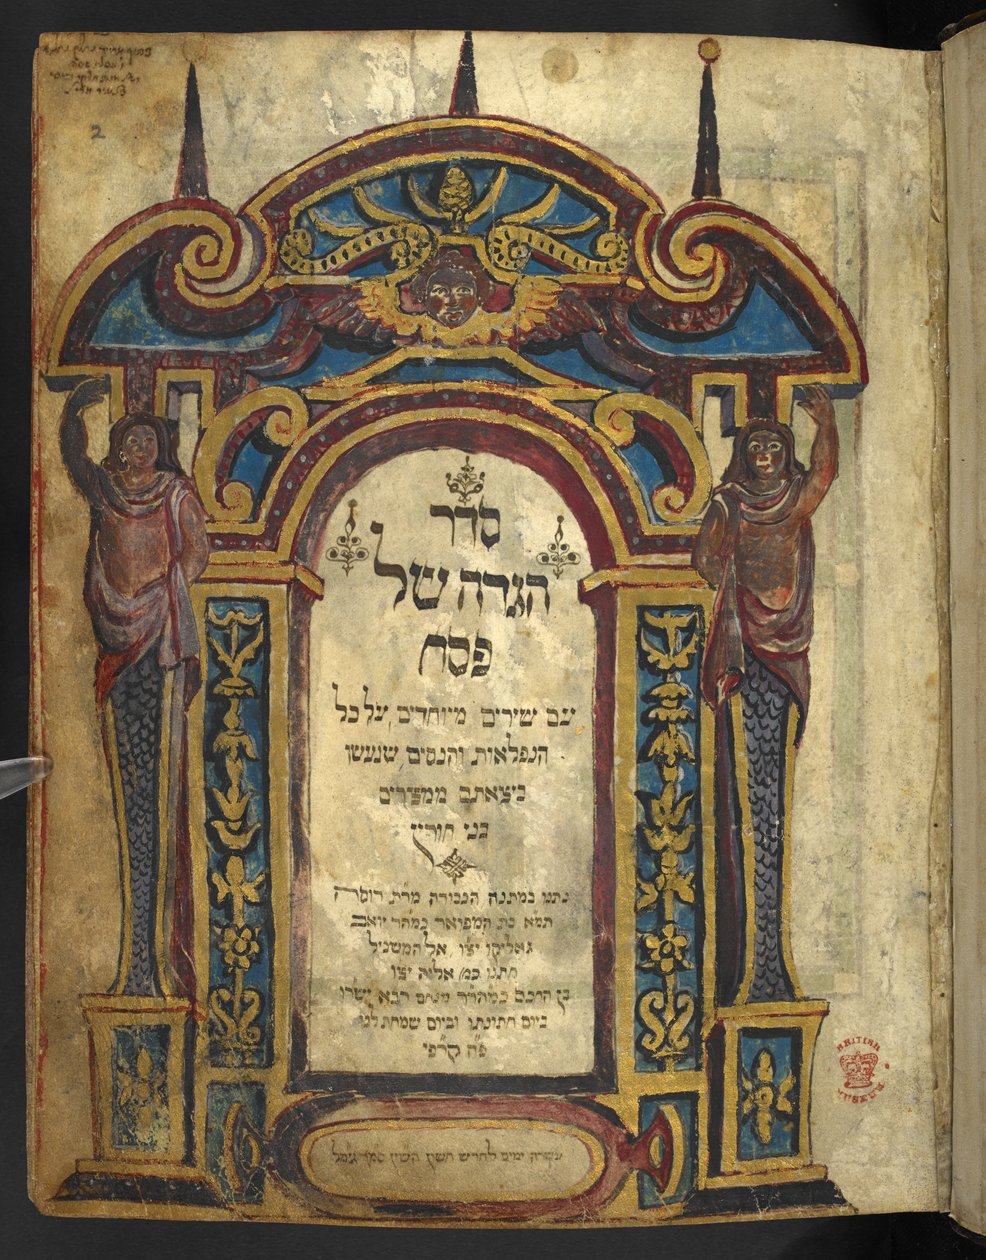 2
סדר
הגדה של
פסח
עם שירים מיוחדים על כל
הנפלאות והנסים שנעשו
ביצאתם ממצרים
בני חורין
נתנו במתנה הגבירה מרת רוסה
תמא בת המפואר כמהר יואב
גאליקו יצ״ו אל המשכיל
חתנו כמ׳ אליה יצו
בן הרכם כמוהר״ר מנחם רבא ישרו
ביום חתונתו וביום שמחת לבו
פה קרפי
עשרה ימים לחדש חשון השין סמך גימל
BRITISH
MUSEUM